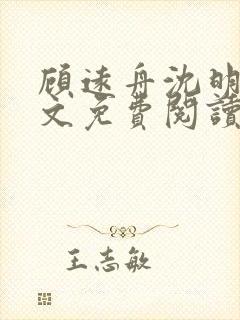 顾远舟沈明
文免费阅读
王志敏